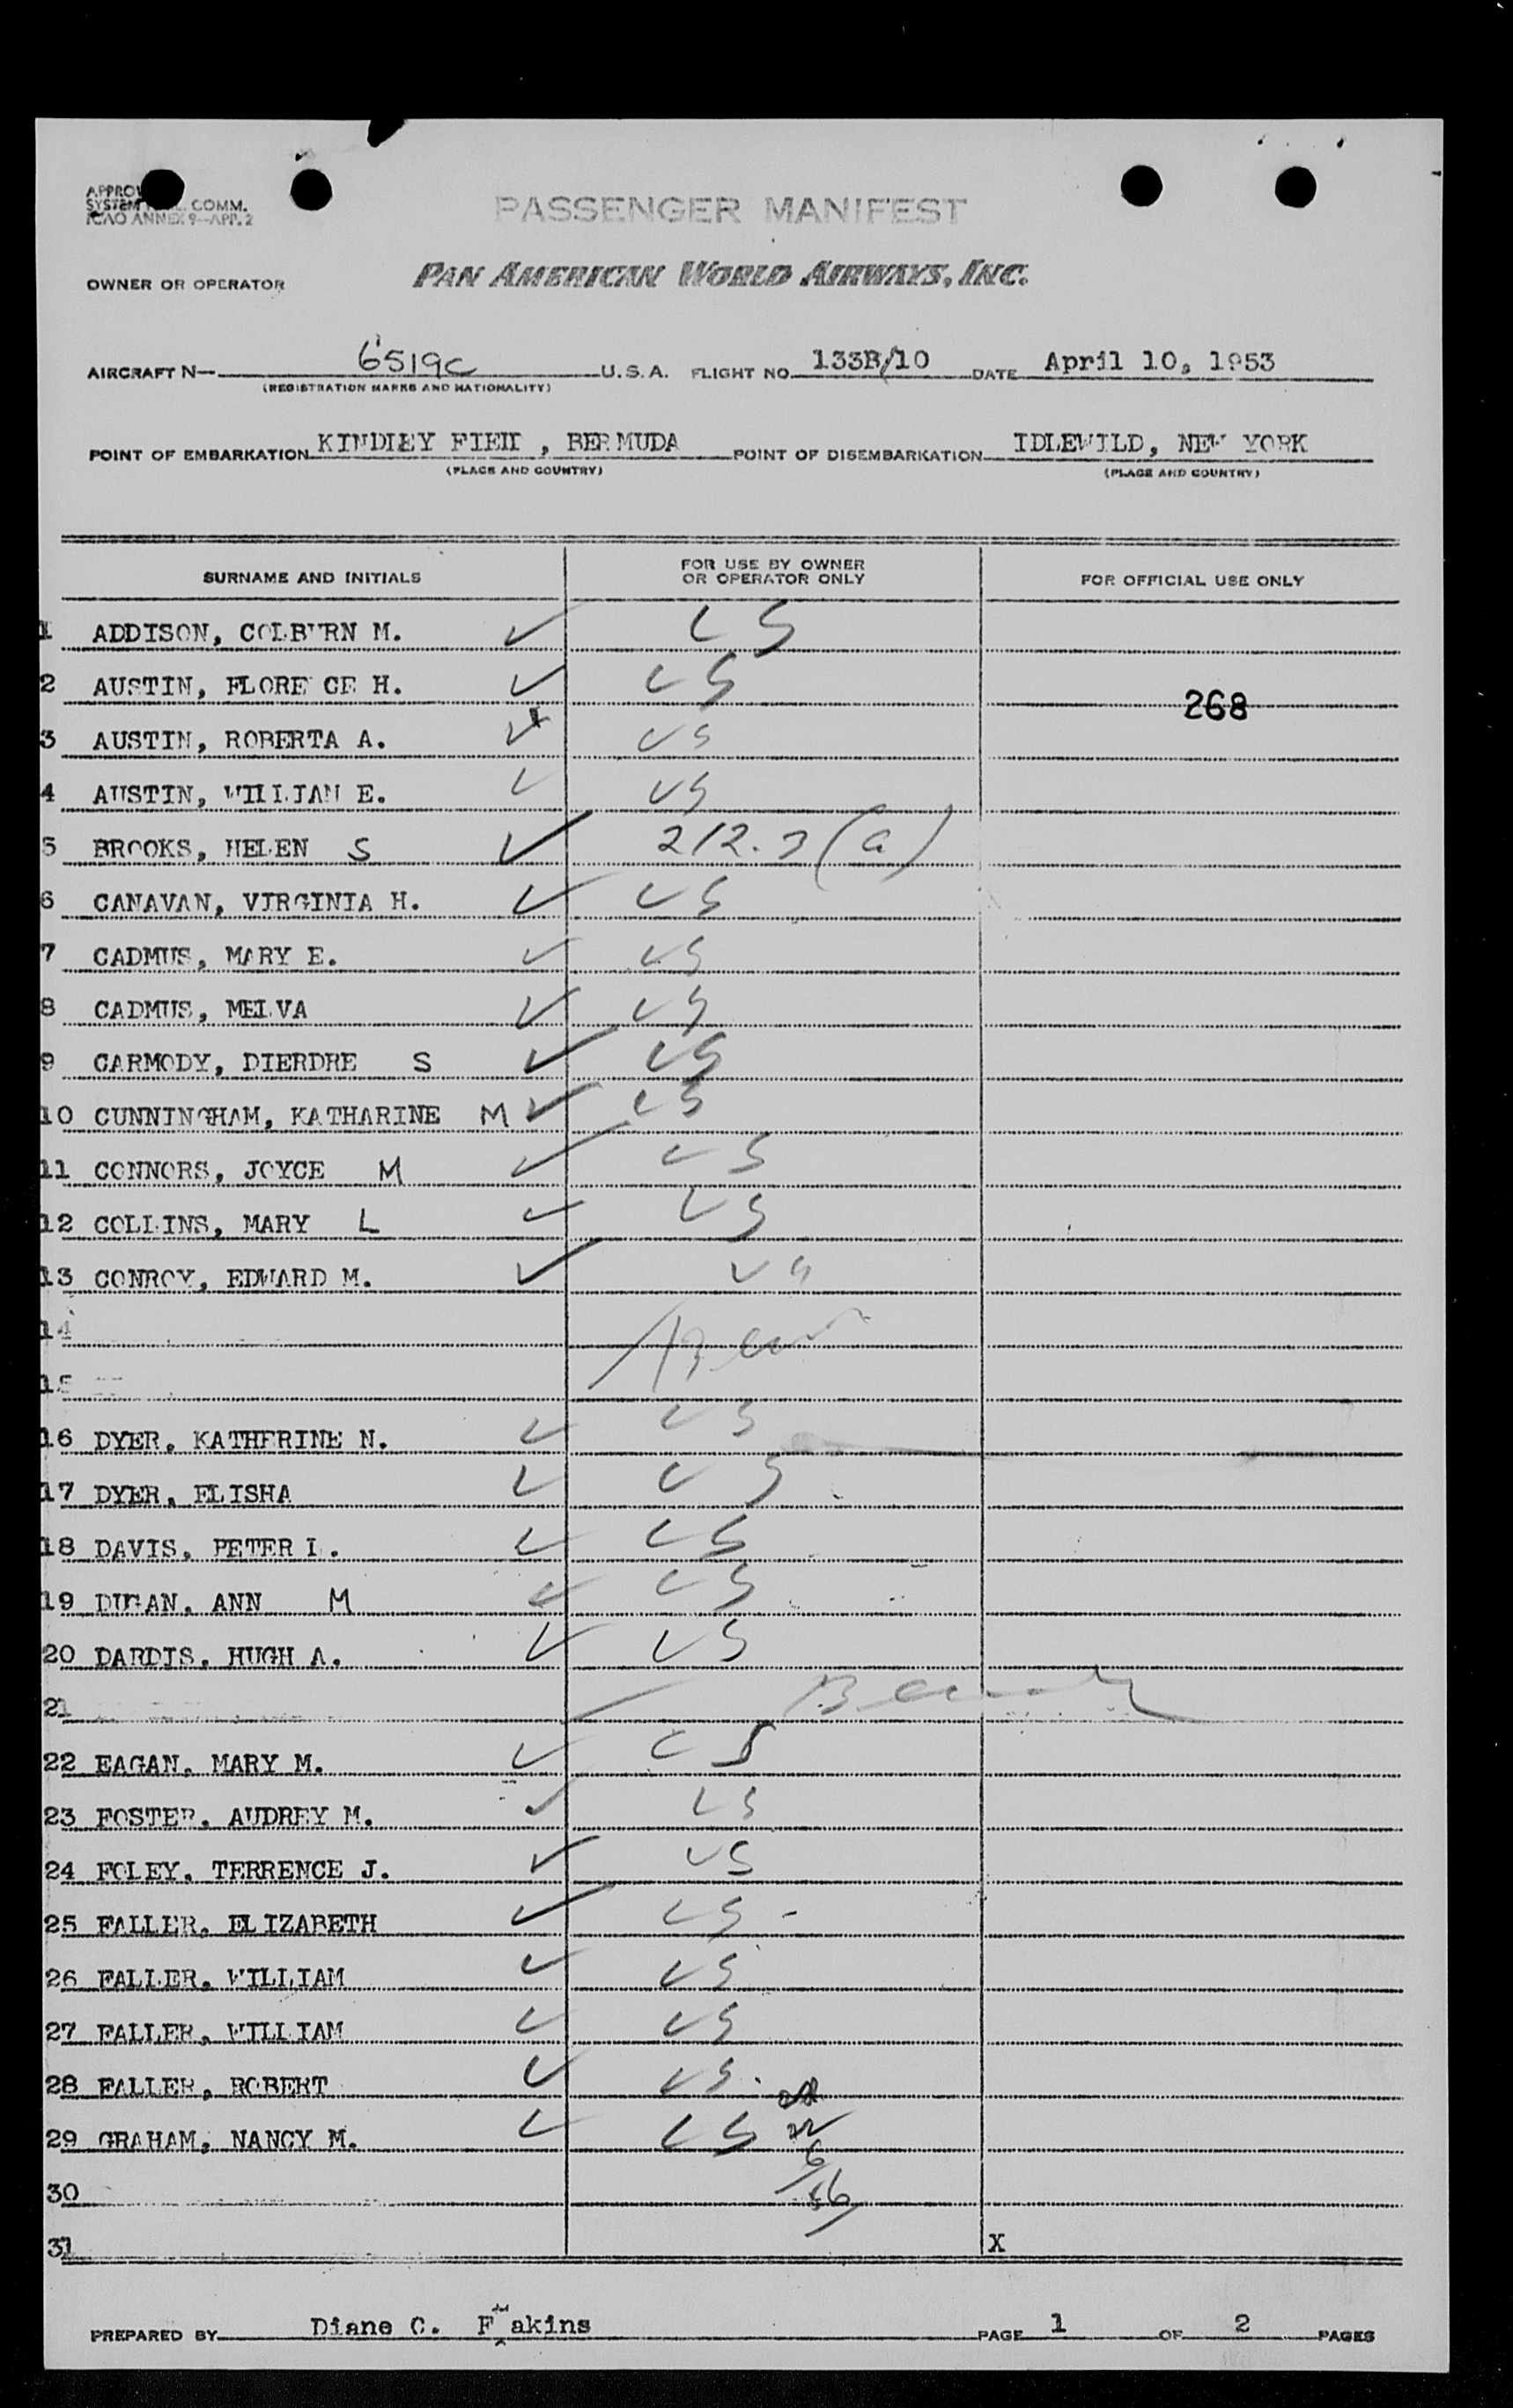 SYSTEM COMM.
ICAO ANNEX 9—APP. 2
PASSENGER MANIFEST
OWNER OR OPERATOR PAN AMERICAN WORLD AIRWAYS, INC.
AIRCRAFT N— 6519C U.S.A. FLIGHT NO. 133B/10 DATE April 10, 1953
(REGISTRATION MARKS AND NATIONALITY)
POINT OF EMBARKATION KINDLEY FIELD, BERMUDA POINT OF DISEMBARKATION IDLEWILD, NEW YORK
(PLACE AND COUNTRY) (PLACE AND COUNTRY)
SURNAME AND INITIALS FOR USE BY OWNER OR OPERATOR ONLY FOR OFFICIAL USE ONLY
1 ADDISON, COLBURN M. ✓ US
2 AUSTIN, FLORE CE H. ✓ US 268
3 AUSTIN, ROBERTA A. ✓ US
4 AUSTIN, WILLIAM E. ✓ US
5 BROOKS, HELEN S ✓ 212.3(a)
6 CANAVAN, VIRGINIA H. ✓ US
7 CADMUS, MARY E. ✓ US
8 CADMUS, MELVA ✓ US
9 CARMODY, DIERDRE S ✓ US
10 CUNNINGHAM, KATHARINE M ✓ US
11 CONNORS, JOYCE M ✓ US
12 COLLINS, MARY L ✓ US
13 CONROY, EDWARD M. ✓ US
14
15
16 DYER, KATHERINE N. ✓ US
17 DYER, ELISHA ✓ US
18 DAVIS, PETER L. ✓ US
19 DUGAN, ANN M ✓ US
20 DARDIS, HUGH A. ✓ US
21
22 EAGAN, MARY M. ✓ US
23 FOSTER, AUDREY M. ✓ US
24 FOLEY, TERRENCE J. ✓ US
25 FALLER, ELIZABETH ✓ US
26 FALLER, WILLIAM ✓ US
27 FALLER, WILLIAM ✓ US
28 FALLER, ROBERT ✓ US
29 GRAHAM, NANCY M. ✓ US
30
31 X
PREPARED BY Diane C. F akins PAGE 1 OF 2 PAGES